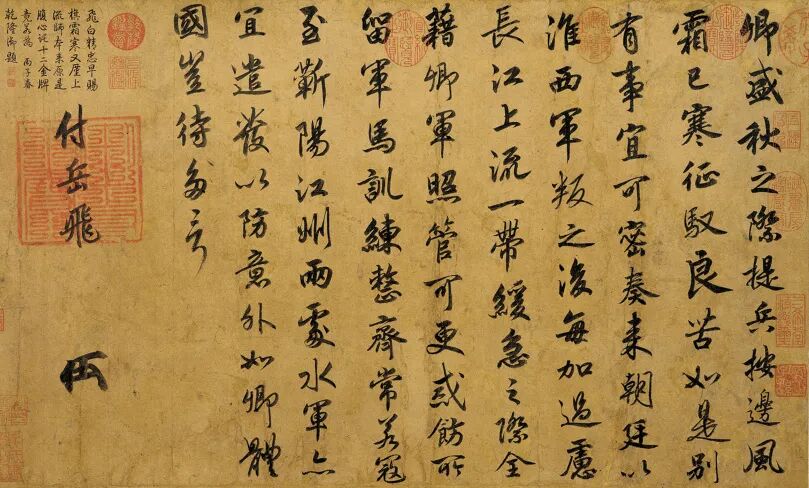 卿盛秋之際提兵按邊風
霜已寒征馭良苦如是別
有事宜可密奏來朝廷以
淮西軍叛之後每加過慮
長江上流一帶緩急之際全
藉卿軍照管可更戒飭所
留軍馬訓練整齊常若寇
至蘄陽江州兩處水軍亦
宜遣發以防意外如卿體
國豈待多言
付岳飛
飛白精忠早賜
旗霜寒又歷上
流師本來原是
腹心託十二金牌
竟若為 丙子春
乾隆御題